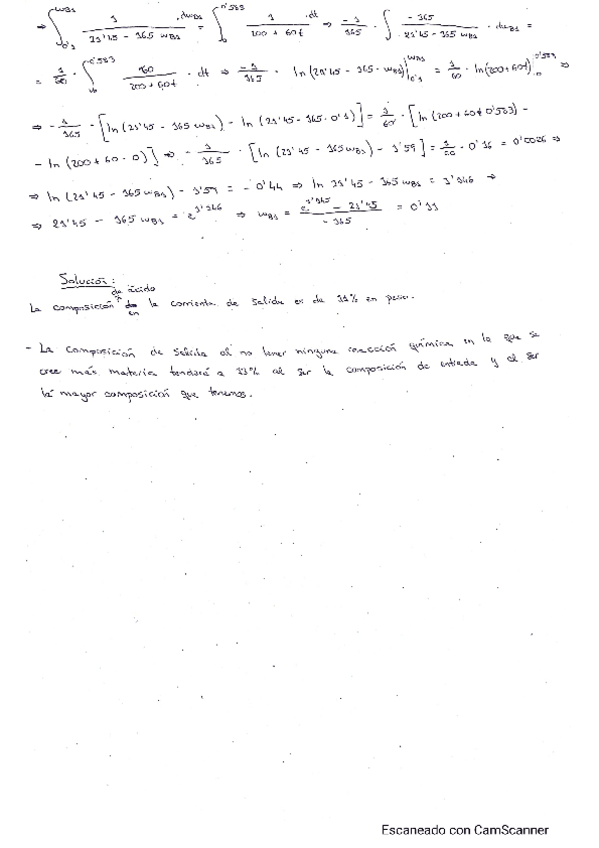 ⇒ ∫_{0'1}^{wB1} 1/(21'45 - 365 wB1) · dwB1 = ∫_0^{0'583} 1/(200 + 60t) · dt ⇒ -1/365 · ∫ -365/(21'45 - 365 wB1) · dwB1 =
= 1/60 · ∫_0^{0'583} 60/(200 + 60t) · dt ⇒ -1/365 · ln (21'45 - 365 · wB1)]_{0'1}^{wB1} = 1/60 · ln(200 + 60t)]_0^{0'583} ⇒
⇒ -1/365 · [ln (21'45 - 365 wB1) - ln (21'45 - 365 · 0'1)] = 1/60 · [ln (200 + 60 · 0'583) -
- ln (200 + 60 · 0)] ⇒ -1/365 · [ln (21'45 - 365 wB1) - 3'59] = 1/60 · 0'16 = 0'0026 ⇒
⇒ ln (21'45 - 365 wB1) - 3'59 = - 0'44 ⇒ ln 21'45 - 365 wB1 = 3'146 ⇒
⇒ 21'45 - 365 wB1 = e^{3'146} ⇒ wB1 = (e^{3'145} - 21'45)/-365 = 0'11
Solución:
de ácido
La composición en la corriente de salida es de 11% en peso.
- La composición de salida al no tener ninguna reacción química en la que se
cree más materia tenderá a 13% al ser la composición de entrada y al ser
la mayor composición que tenemos.
Escaneado con CamScanner